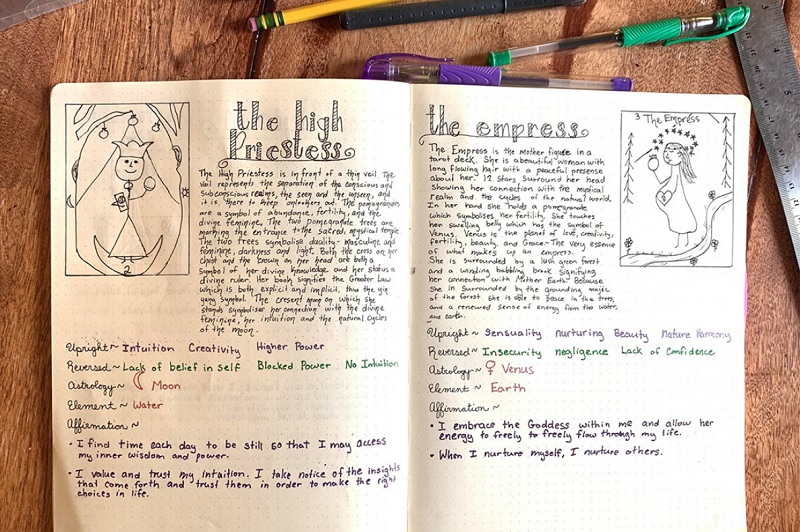 the high
Priestess
The High Priestess is in front of a thin veil. The
veil represents the separation of the conscious and
subconscious realms, the seen and the unseen, and
it is there to keep onlookers out. The pomegranates
are a symbol of abundance, fertility, and the
divine feminine. The two pomegranate trees are
marking the entrance to the sacred, mystical temple.
The two trees symbolise duality- masculine and
feminine, darkness and light. Both the cross on her
chest and the crown on her head are both a
symbol of her divine knowledge and her status a
divine ruler. Her book signifies the Greater Law
which is both explicit and implicit, thus the yin
yang symbol. The cresent moon on which she
stands symbolises her connection with the divine
feminine, her intuition and the natural cycles
of the moon.
2
Upright~ Intuition Creativity Higher Power
Reversed~ Lack of belief in Self Blocked Power No Intuition
Astrology~ Moon
Element~ Water
Affirmation~
• I find time each day to be still so that I may access
my inner wisdom and power.
• I value and trust my intuition. I take notice of the insights
that come forth and trust them in order to make the right
choices in life.
the empress
The Empress is the mother figure in a
tarot deck. She is a beautiful woman with
long flowing hair with a peaceful presense
about her. 12 Stars Surround her head
showing her connection with the mystical
realm and the cycles of the natural world.
In her hand she holds a pomegranate
which symbolises her fertility. She touches
her swelling belly which has the symbol of
Venus. Venus is the planet of love, creativity,
fertility, beauty, and Grace- The very essence
of what makes up an empress.
She is surrounded by a lush green forest
and a winding babbling brook signifying
her connection with Mother Earth. Because
she is surrounded by the grounding magic
of the forest she is able to peace in the trees,
and a renewed sense of energy from the water,
and earth.
3 The Empress
Upright~ Sensuality nurturing Beauty Nature Harmony
Reversed~ Insecurity negligence Lack of Confidence
Astrology~ ♀ Venus
Element~ Earth
Affirmation~
• I embrace the Goddess within me and allow her
energy to freely to freely flow through my life.
• When I nurture myself, I nurture others.